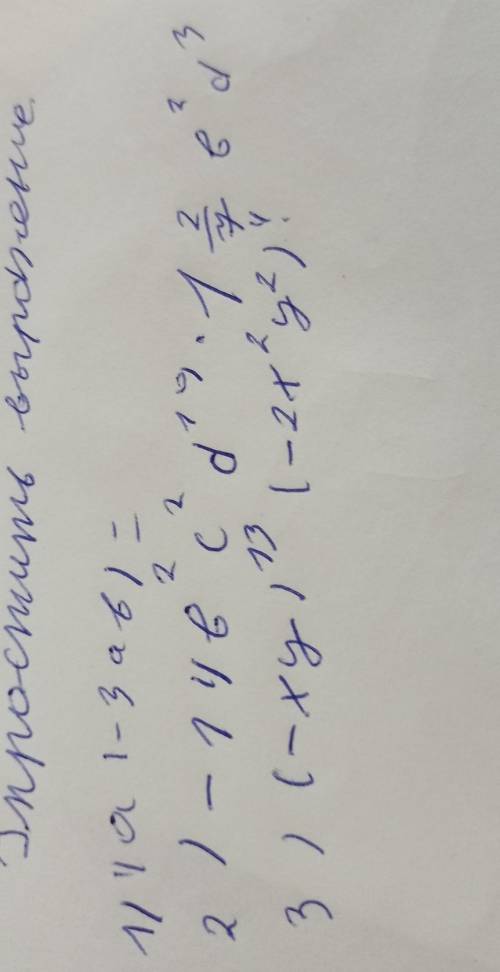 Упростить выражение.
1) 4a (-3ab) =
2) -14b²c²d¹⁹ · 1 2/7 b²d³
3) (-xy)¹³ (-2x²y²)⁴.